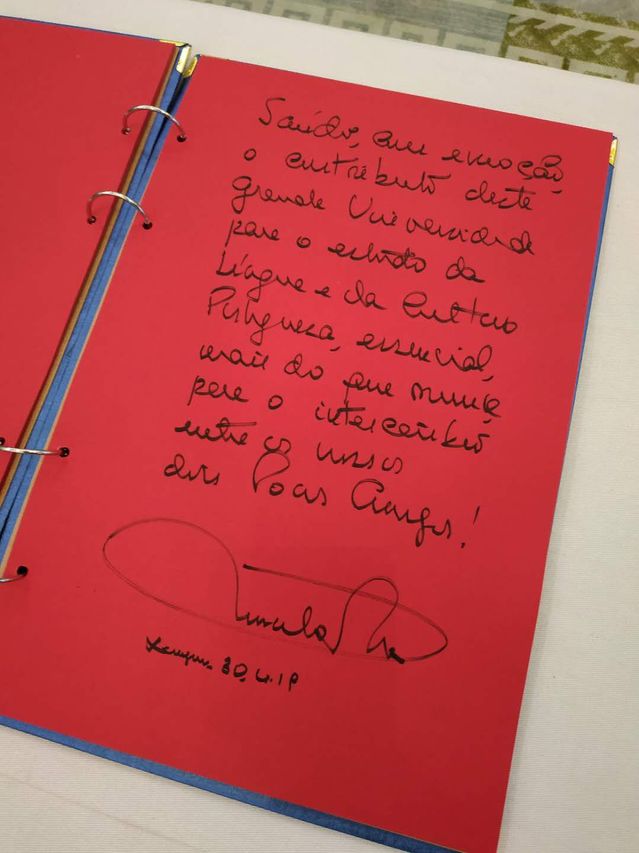 Saúdo, com emoção,
o contributo desta
grande Universidade
para o estudo da
Língua e da Cultura
Portuguesa, essencial,
mais do que nunca,
para o intercâmbio
entre os nossos
dois Povos Amigos!
30.4.19